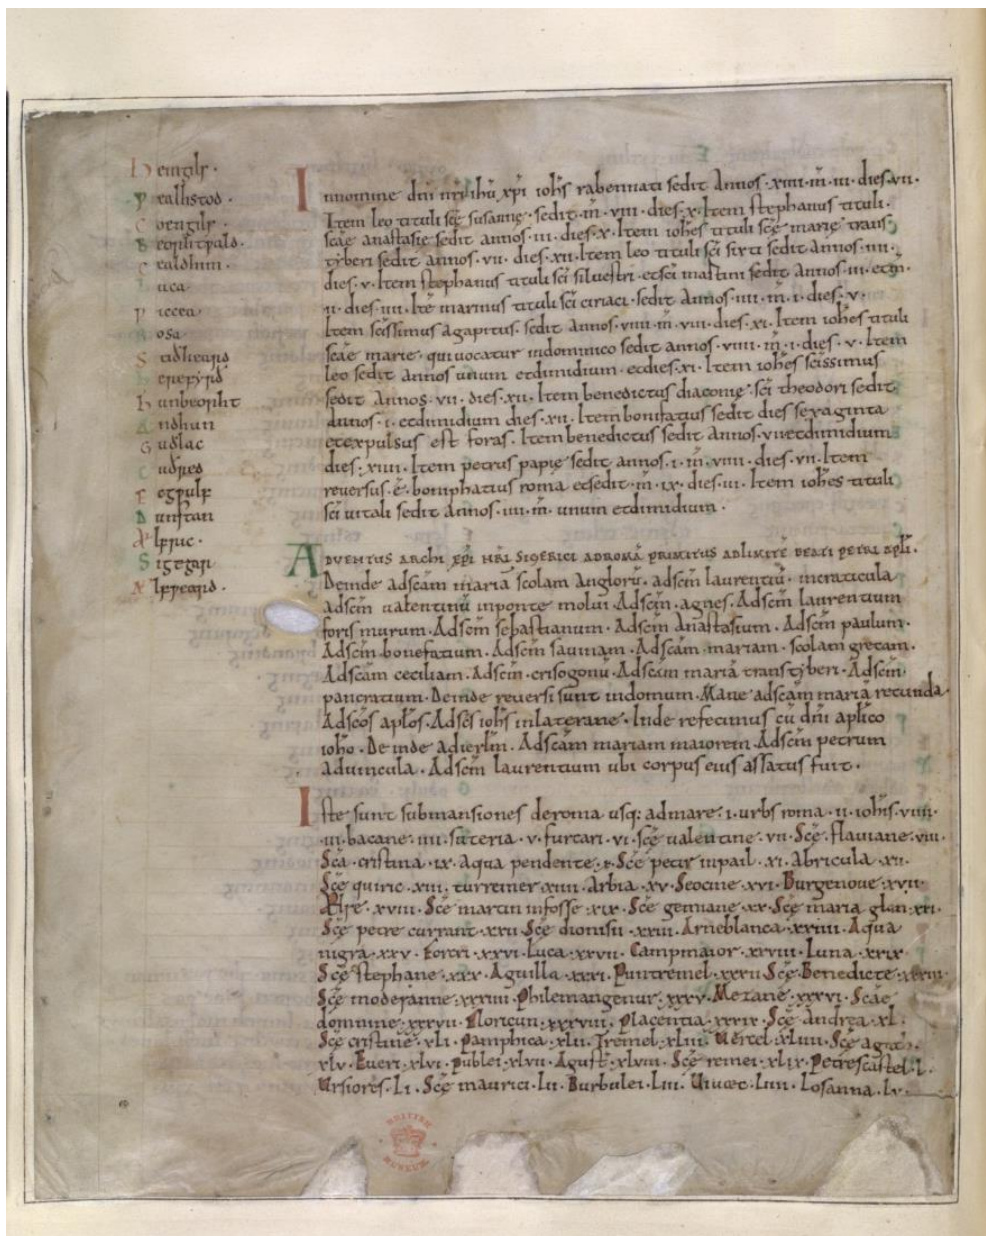 Heingils·
Wealhstod·
Coengils·
Beorhtwald·
Cealdhun·
Luca·
Wiccea·
Bosa·
Sealdheard
Herewyrd
Hunbeorht
Andhun
Gudlac
Cudred
Ecgwulf
Dunstan
Ælfric·
Sigegar
Ælfweard·
In nomine dn̄i nr̄i ihū xp̄i ioh̄s rabennati sedit Annos·xiiii·m̄·iii·dies·vii·
Item leo tituli scę susanne·sedit·m̄·viii·dies·x·Item stephanus tituli·
scāe anastasie sedit annos·iii·dies·x·Item ioh̄es tituli scę marie trans
tyberi sedit annos·vii·dies·xii·Item leo tituli sc̄i sixti sedit Annos·iiii·
dies·v·Item stephanus tituli sc̄i silvestri·et sc̄i martini sedit Annos·iii·et m̄·
ii·dies·iiii·Itē marinus tituli sc̄i ciriaci·sedit Annos·iiii·m̄·i·dies·v·
Item sc̄issimus Agapitus·sedit Annos·viiii·m̄·viii·dies·xi·Item ioh̄es tituli
scāe marie·qui vocatur indominico sedit annos·viiii·m̄·i·dies·v·Item
leo sedit annos unum et dimidium·ec dies·xi·Item ioh̄es sc̄issimus
sedit Annos·vii·dies·xii·Item benedictus diaconię·sc̄i theodori sedit
Annos·i·et dimidium dies·xii·Item bonifatius sedit dies sexaginta
et expulsus est foras·Item benedictus sedit Annos·vii et dimidium
dies·xiiii·Item petrus papię sedit annos·i·m̄·viiii·dies·vii·Item
reversus·ē·boniphatius romā et sedit·m̄·ix·dies·iii·Item ioh̄es tituli
sc̄i vitali sedit Annos·iiii·m̄·unum et dimidium·
ADVENTUS ARCHI EP̄I NR̄I SIGERICI AD ROMĀ PRIMITUS AD LIMITĒ BEATI PETRI APL̄I·
Deinde ad sc̄am mariā scolam Anglorū·ad scm̄ laurentiū·in craticula
ad scm̄ valentinū in ponte molui·Ad scm̄·agnes·Ad scm̄ laurentium
foris murum·Ad scm̄ sebastianum·Ad scm̄ Anastasium·Ad scm̄ paulum·
Ad scm̄·bonefatium·Ad scm̄ savinam·Ad scām·mariam·scolam grecam·
Ad scām ceciliam·Ad scm̄·crisogonū·Ad scām mariā transtyberi·Ad scm̄·
pancratium·Deinde reversi sunt in domum·Mane ad scām mariā rotunda·
Ad scōs apl̄os·Ad sc̄i ioh̄s in laterane·Inde refecimus cū dn̄i apl̄ico
ioh̄o·De inde ad ierl̄m·Ad scām mariam maiorem·Ad scm̄ petrum
ad vincula·Ad scm̄ laurentium ubi corpus eius assatus fuit·
Iste sunt submansiones de roma usq; ad mare·i·urbs roma·ii·ioh̄is·viiii·
·iii·bacane·iiii·suteria·v·furcari·vi·scę valentine·vii·Scę flaviane·viii·
Scā cristina·ix·Aqua pendente·x·Scę petir in pail·xi·Abricula·xii·
Scę quiric·xiii·turreiner·xiiii·Arbia·xv·Seocine·xvi·Burgenove·xvii·
Ælse·xviii·Scę martin in fosse·xix·Scę gemiane·xx·Scę maria glan·xxi·
Scę petre currant·xxii·Scę dionisii·xxiii·Arneblanca·xxiiii·Aqua
nigra·xxv·Forcri·xxvi·Luca·xxvii·Campmaior·xxviii·Luna·xxix·
Scę stephane·xxx·Aguilla·xxxi·Puntremel·xxxii·Scę Benedicte·xxxiii·
Scę moderanne·xxxiiii·Philemangenur·xxxv·Metane·xxxvi·Scāe
domnine·xxxvii·Floricun·xxxviii·Placentia·xxxix·Scę Andrea·xl·
Scę cristine·xli·Pamphica·xlii·Tremel·xliii·Vercel·xliiii·Scę agath·
xlv·Everi·xlvi·Publei·xlvii·Agust·xlviii·Scę remei·xlix·Petrescastel·L·
Ursiores·Li·Scę maurici·Lii·Burbulei·Liii·Vivæc·Liiii·Losanna·Lv·
BRITISH
MUSEUM